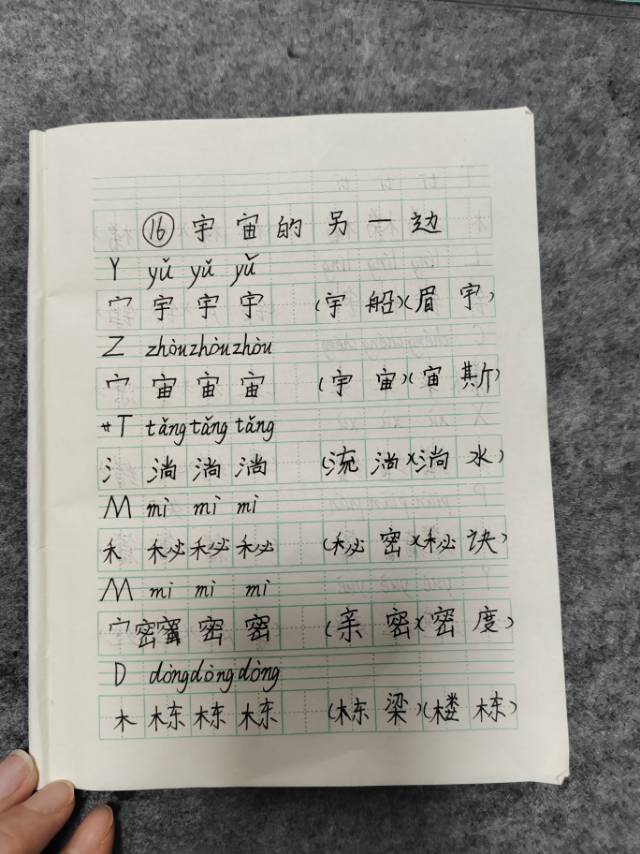 ⑯宇宙的另一边
Y yǔ yǔ yǔ
宀 宇 宇 宇 (宇船)(眉宇)
Z zhòu zhòu zhòu
宀 宙 宙 宙 (宇宙)(宙斯)
*T tǎng tǎng tǎng
氵 淌 淌 淌 (流淌)(淌水)
M mì mì mì
禾 秘 秘 秘 (秘密)(秘诀)
M mì mì mì
宀 密 密 密 密 (亲密)(密度)
D dòng dòng dòng
木 栋 栋 栋 (栋梁)(楼栋)